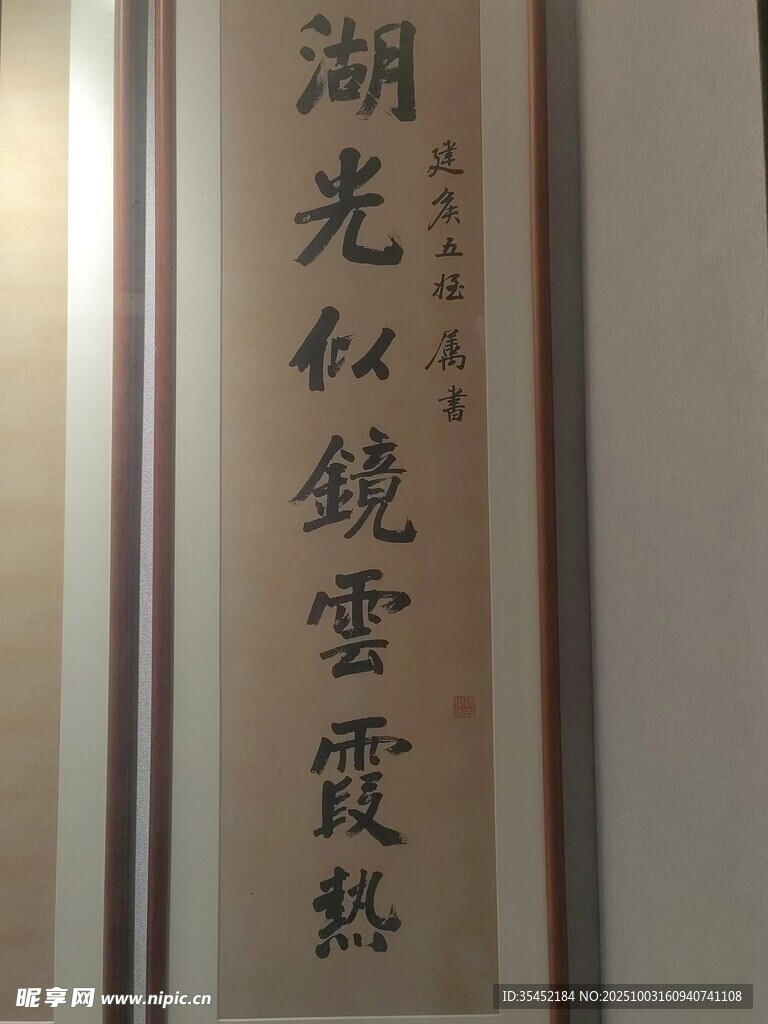 湖光似鏡雲霞熱
建侯五姪 属書
昵享网 www.nipic.cn
ID:35452184 NO:20251003160940741108